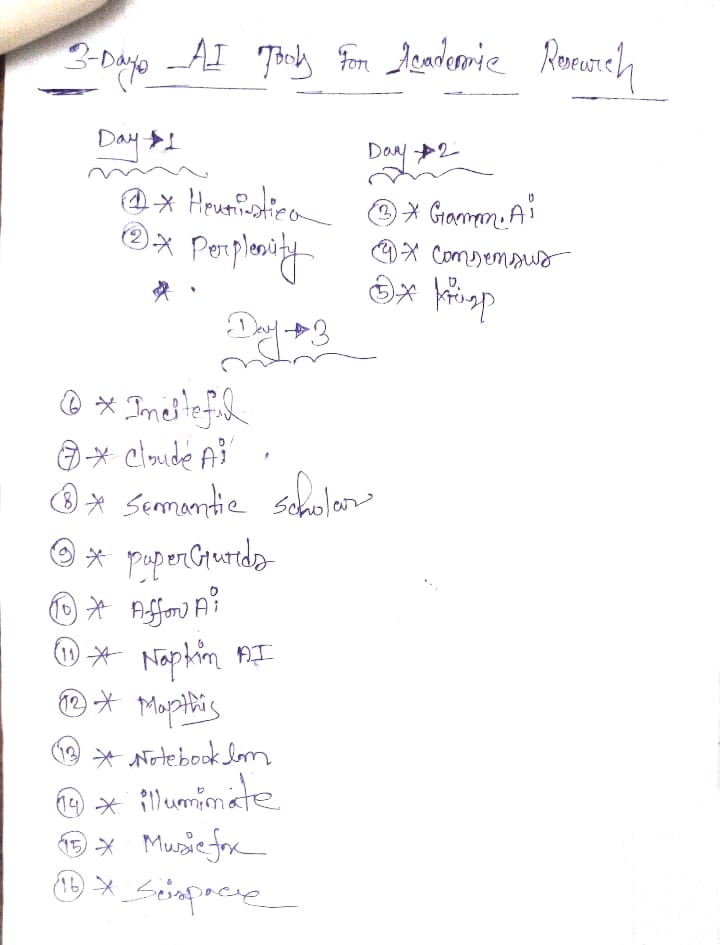 3-Days AI Tools For Academic Research
Day → 1
① * Heuristica
② * Perplexity
* .
Day → 2
③ * Gamm.Ai
④ * Consensus
⑤ * krisp
Day → 3
⑥ * Inciteful
⑦ * Cloude Ai
⑧ * Semantic Scholar
⑨ *
⑩ * Afforai
⑪ * Napkin AI
⑫ * Mapthis
⑬ * Notebooklm
⑭ * illuminate
⑮ * Musicfx
⑯ * Scispace